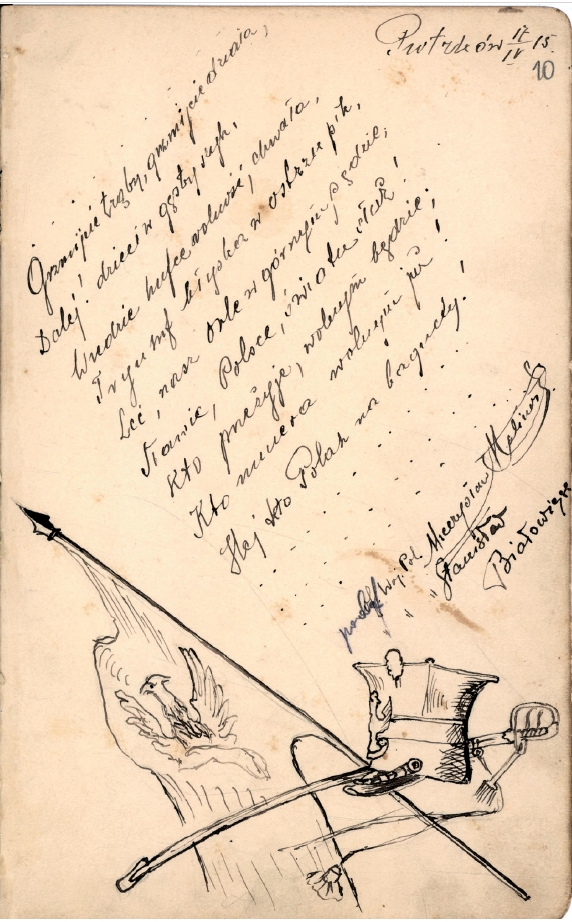 Piotrków 17/IV 15.
10
Grzmijcie trąby, grzmijcie działa,
Dalej! dzieci w gęsty szyk,
Wiedzie hufce wolność, chwała,
Tryumf błyska w ostrzu pik,
Leć, nasz orle w górnym pędzie,
Sławie, Polsce, światu służ!
Kto przeżyje, wolnym będzie,
Kto umiera wolnym już!
Hej kto Polak na bagnety!
Mieczysław
Stanisław
Białowiejs
Woj. Pol.
" "